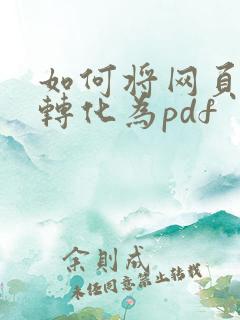 如何将网页
轉化为pdf
余則成
未经同意禁止转载